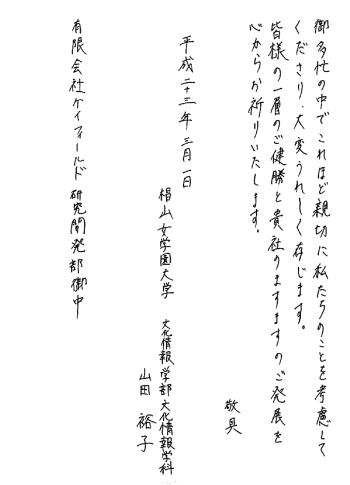 御多忙の中でこれほど親切に私たちのことを考慮して
くださり、大変うれしく存じます。
皆様の一層のご健勝と貴社のますますのご発展を
心からお祈りいたします。
敬具
平成二十三年三月一日
椙山女学園大学　文化情報学部文化情報学科
山田　裕子
有限会社ケイフィールド　研究開発部御中